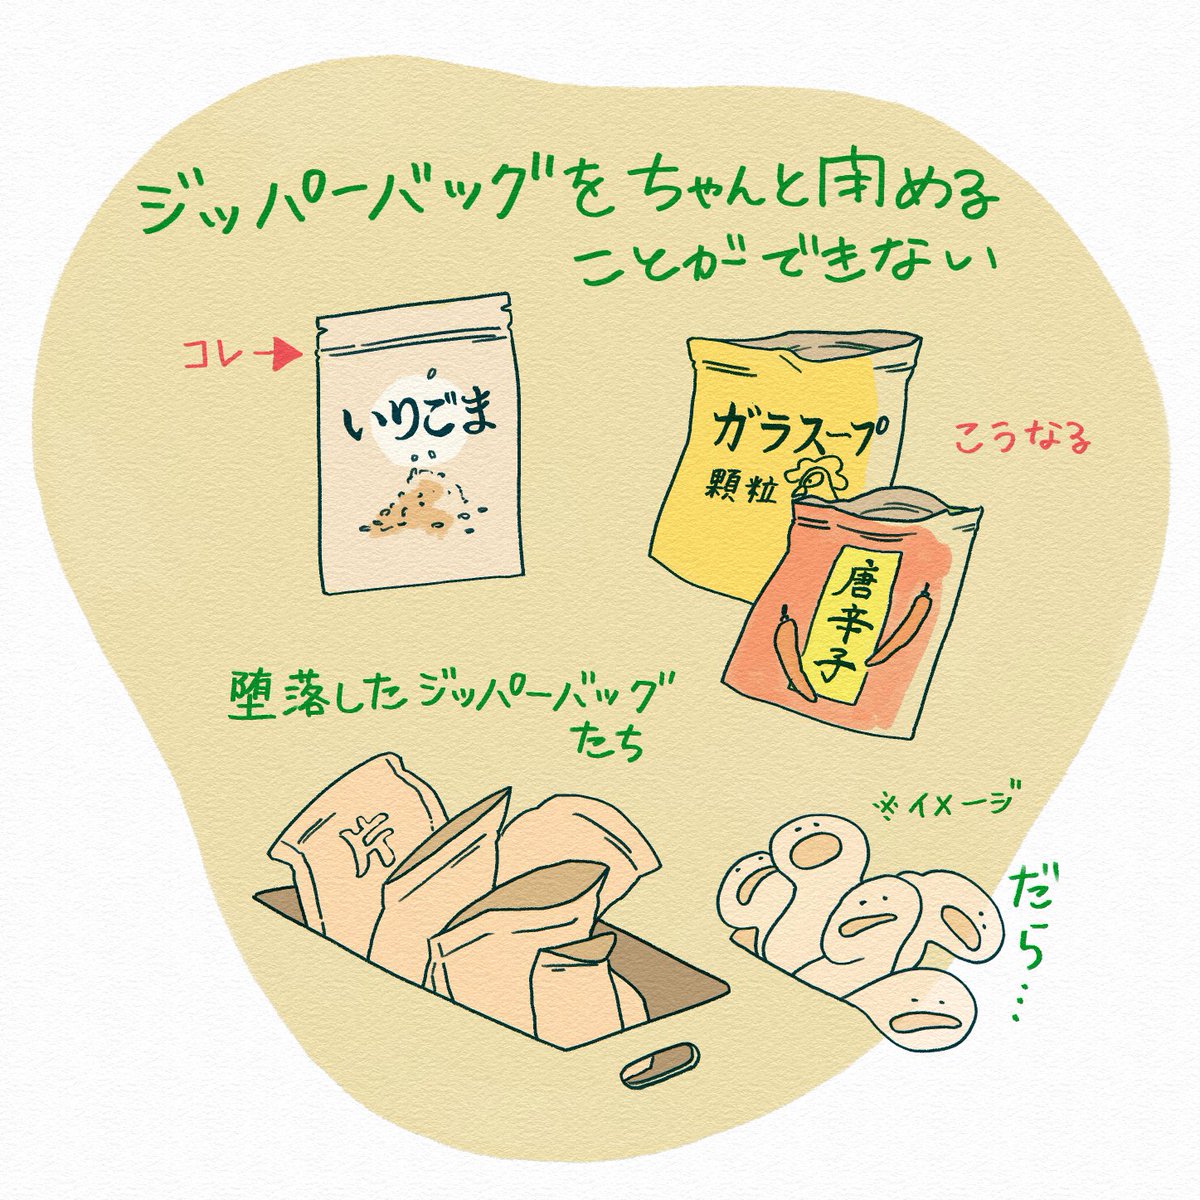 ジッパーバッグをちゃんと閉める
ことができない
コレ→
いりごま
ガラスープ
顆粒
こうなる
唐辛子
堕落したジッパーバッグ
たち
片
※イメージ
だら…